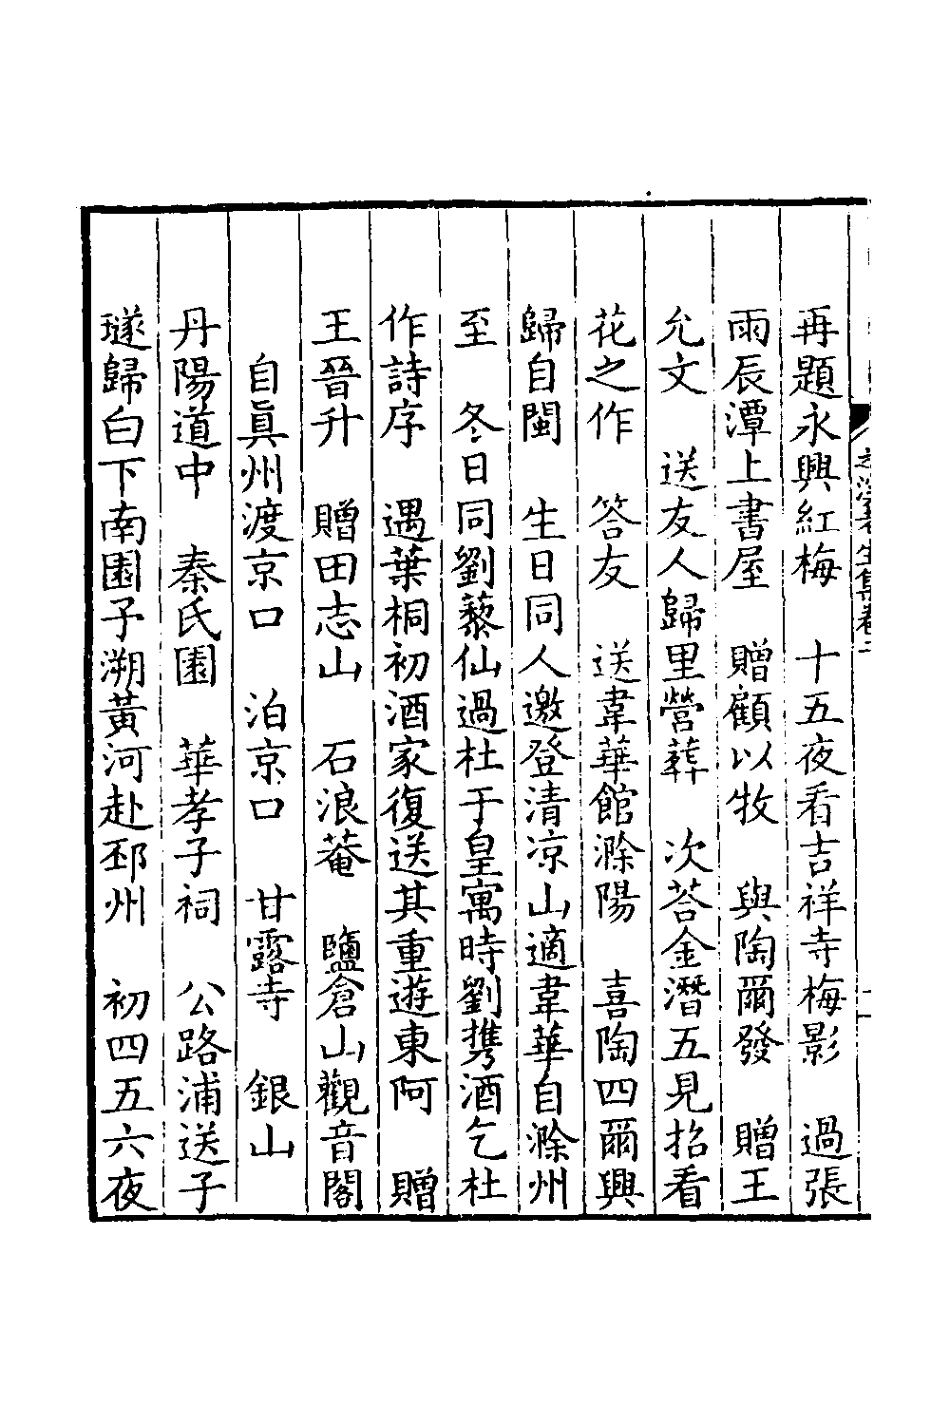 再題永興紅梅　十五夜看吉祥寺梅影　過張
雨辰潭上書屋　贈顧以牧　與陶爾發　贈王
允文　送友人歸里營葬　次荅金潛五見招看
花之作　答友　送韋華館滁陽　喜陶四爾興
歸自閩　生日同人邀登清凉山適韋華自滁州
至　冬日同劉藜仙過杜于皇寓時劉携酒乞杜
作詩序　遇葉桐初酒家復送其重遊東阿　贈
王晉升　贈田志山　石浪菴　鹽倉山觀音閣
自眞州渡京口　泊京口　甘露寺　銀山
丹陽道中　秦氏園　華孝子祠　公路浦送子
璲歸白下南園予溯黃河赴邳州　初四五六夜